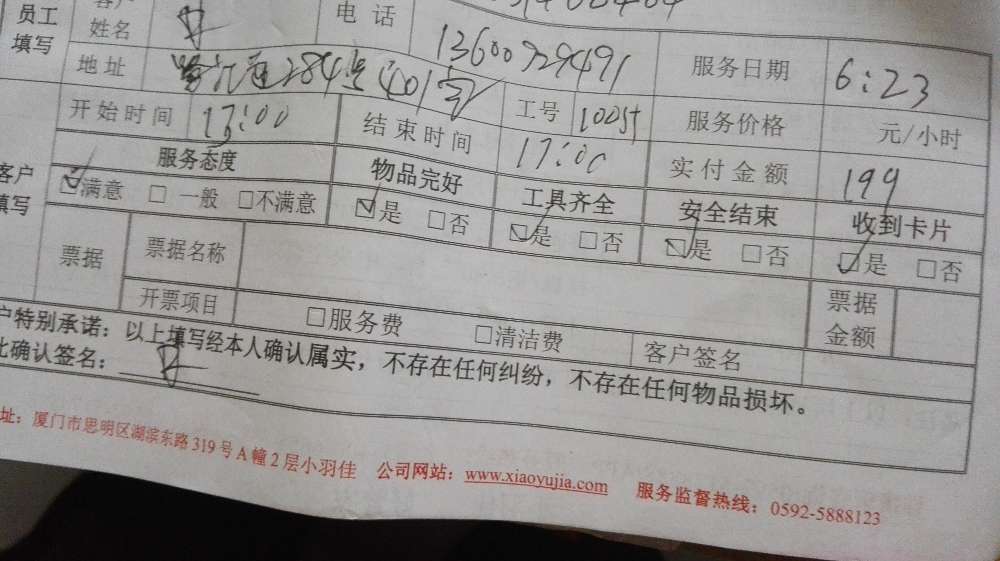 员工 填写 客户 姓名 电话 13600929491 服务日期 6:23
地址 284 401室 工号 服务价格 元/小时
开始时间 13:00 结束时间 17:00 实付金额 199
客户 填写 服务态度 物品完好 工具齐全 安全结束 收到卡片
☑满意 □一般 □不满意 ☑是 □否 ☑是 □否 ☑是 □否 ☑是 □否
票据 票据名称 票据 金额
开票项目 □服务费 □清洁费 客户签名
户特别承诺：以上填写经本人确认属实，不存在任何纠纷，不存在任何物品损坏。
此确认签名：
址：厦门市思明区湖滨东路319号A幢2层小羽佳 公司网站：www.xiaoyujia.com 服务监督热线：0592-5888123